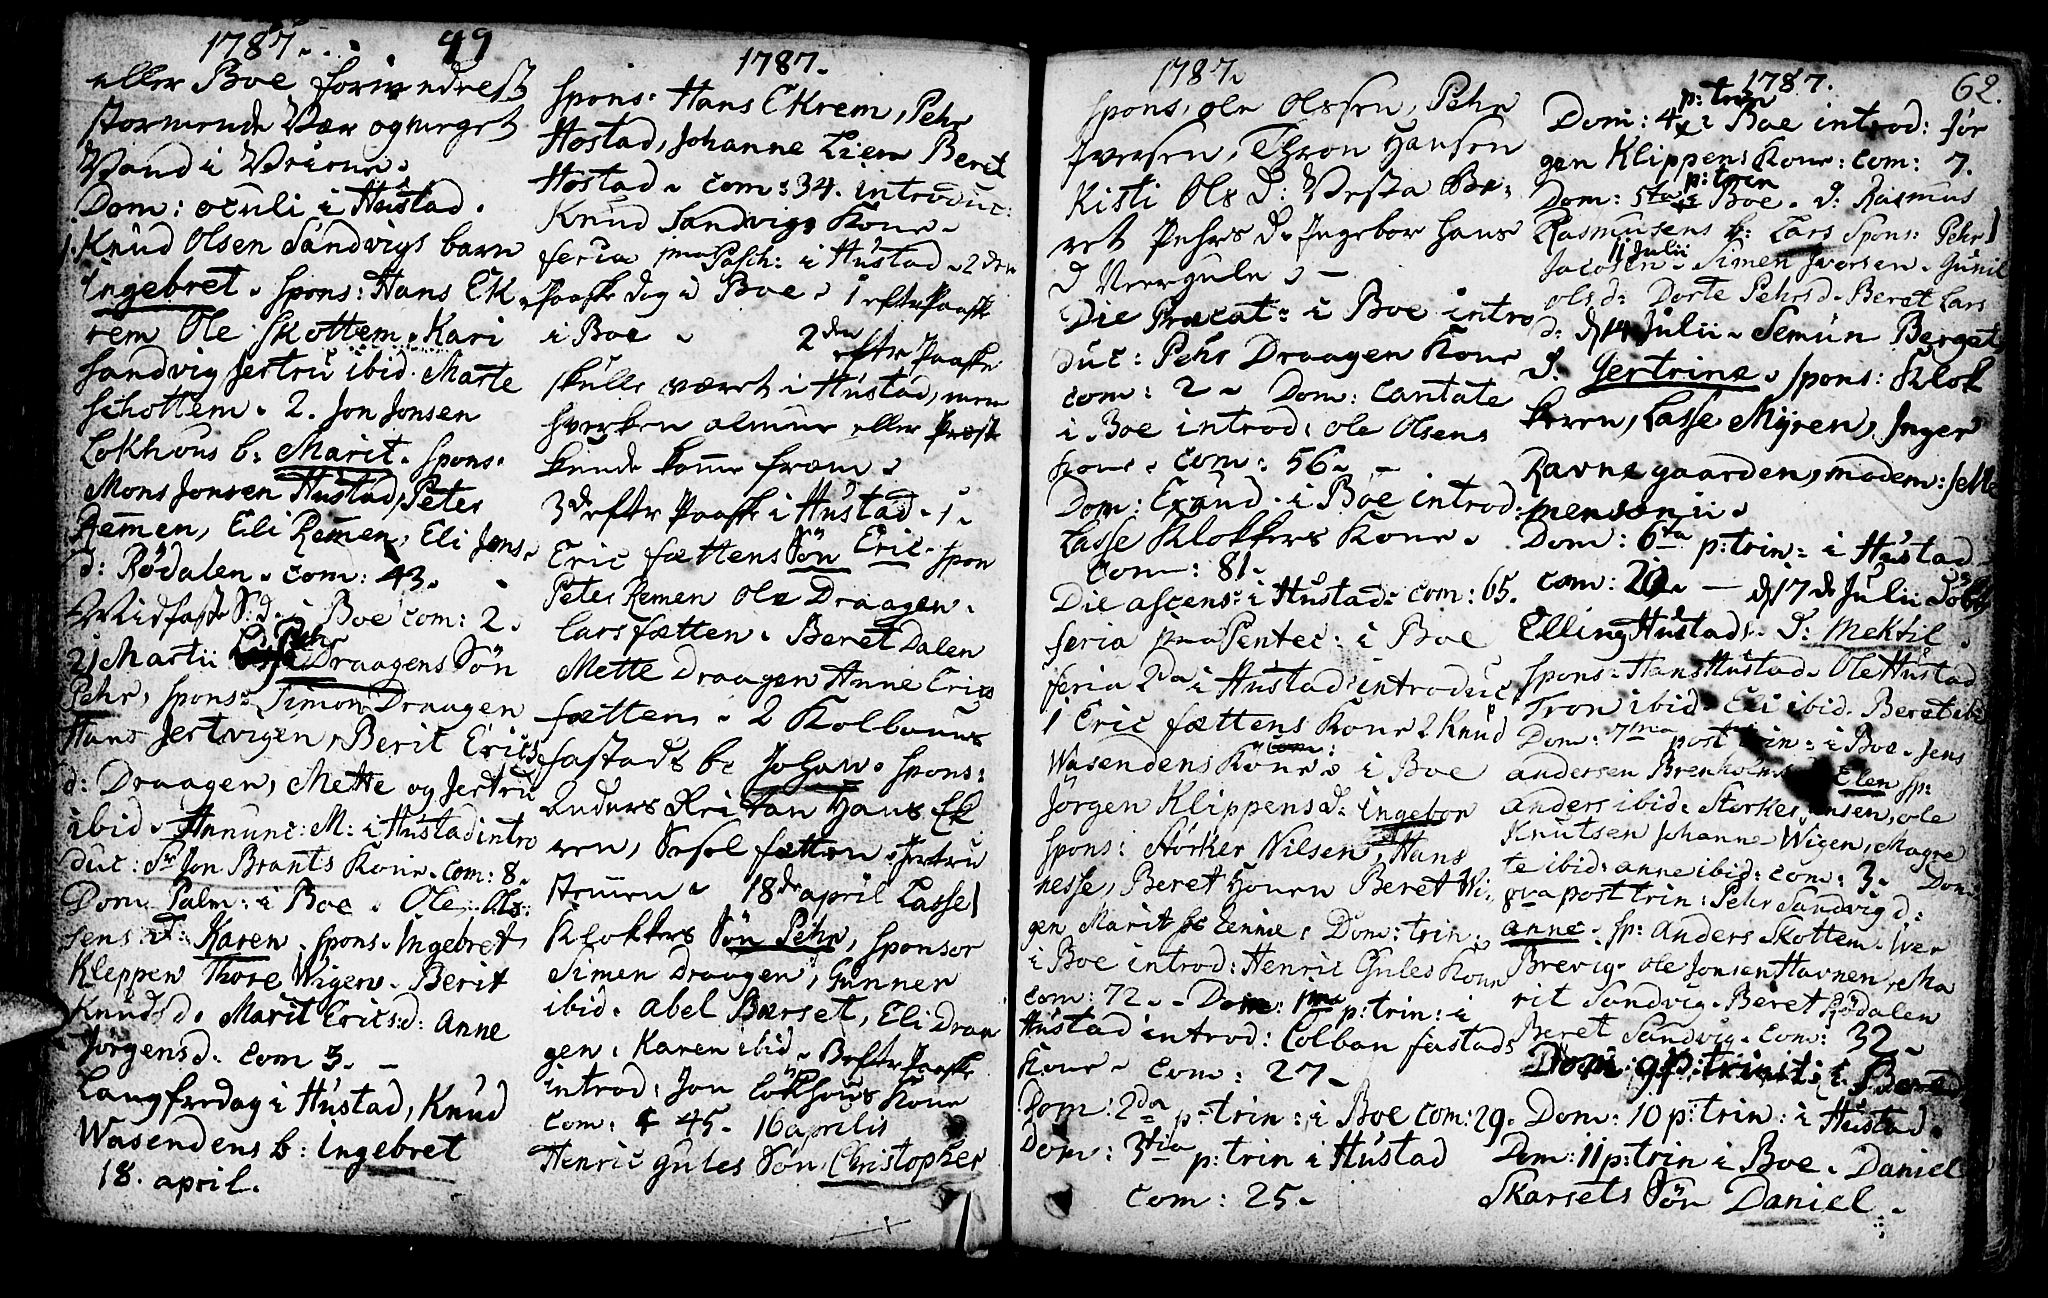 1787. . . . 99
eller Boe formedelst
stormende Vær og meget
Vand i Veiene.
Dom: oculi i Hustad.
1. Knud Olsen Sandvigs barn
Ingebret. Spons: Hans Ek
rem Ole Skottem. Kari
Sandvig Jertru ibid. Marte
Schottem. 2. Jon Jonsen
Lokhous b: Marit. Spons.
Mons Jonsen Hustad, Peter
Remen, Eli Remen, Eli Jons
d: Rödalen. com: 43.
Midfaste S:d. i Boe com: 2.
21 Martii Pehr Draagens Sön
Pehr, spons: Simon Draagen
Hans Jertvigen, Berit Erics
d: Draagen, Mette og Jertru
ibid. Annunc: M: i Hustad intro
duc: Sr Jon Brants Kone. com: 8.
Dom Palm: i Boe. Ole Ols:
sens D: Karen. spons. Ingebret
Kleppen Thore Wigen. Berit
Knudsd. Marit Erics:d: Anne
Jörgensd. com 3. —
Langfredag i Hustad, Knud
Wasendens b: Ingebret
18. april.
1787.
spons: Hans Ekrem, Pehr
Hostad, Johanne Liem Beret
Hostad. com: 34. introduc:
Knud Sandvigs Kone.
feria pma Pasch: i Hustad. 2den
Paaske dag i Boe. 1 efter Paaske
i Boe. 2den efter Paaske
skulle været i Hustad, men
hverken almue eller Præst
kunde komme frem.
3de efter Paaske i Hustad. 1.
Eric fættens Sön Eric. spon
Peter Remen Ole Draagen.
Lars fætten. Beret Dalen
Mette Draagen Anne Erics
fættens. 2 Kolbanus
fastads b: Johan. spons:
Anders Kristan Hans Ek
ren, Sesel fætten. Jertru
Struen. 18de april Lasse
Klokkers Sön Pehr, sponsor
Simen Draagen, Gunner
ibid. Abel Bærset, Eli Draa
gen. Karen ibid. 3 efter Paaske
introd: Jon Lökhous Kone
com: 45. 16 aprilis
Henric Gules Sön Christopher
1787.
spons. Ole Olssen, Pehr
Iversen, Thron Hansen
Kisti Ols D: Vesta Be,
ret Pehrs d. Ingebor Hans
d Veergule. —
Die Precat: i Boe intro
duc: Pehr Draagen Kone
com: 2. Dom: Cantate
i Boe introd: Ole Olsens
Kone. com: 56. —
Dom: Exaud. i Boe introd:
Lasse Klokkers Kone.
com: 81.
Die ascens: i Hustad: com: 65.
feria pma Pentec: i Boe
feria 2da i Hustad introduc
1 Eric fættens Kone 2 Knud
Wasendens Kone. i Boe
Jörgen Klippens d: Ingebor
spons: Störker Nilsen, Hans
nesse, Beret Houen Beret Wi,
gen Marit Tennie. Dom: trin.
i Boe introd: Henric Gules Kone
com: 72. Dom: 1ma p: trin: i
Hustad introd: Colban fastads
Kone. com: 27.
Dom: 2da p: trin: i Boe com: 29.
Dom: 3tia p: trin i Hustad
com: 25.
1787. 62.
Dom: 4 p: trin i Boe introd: Jör
gen Klippens Kone: com: 7.
Dom: 5ta p: trin i Boe. d: Rasmus
Rasmusens b: Lars Spons: Pehr
Jacobsen. 11 Julii Simen Iversen. Gunil
ols d: Dorte Pehrsd. Beret Lars
d: d 14 Julii. Semun Berget
d. Gertrina. spons: Klok
keren, Lasse Myren, Inger
Ravnegaarden, madem: Jelle
Dom: 6ta p: trin: i Hustad
com: 20. — d 17de Julii döbt
Elling Hustad. D: Mektil.
spons: Hans Hustad. Ole Hustad
Tron ibid. Eli ibid. Beret ibid
Dom: 7ma post trin: i Boe. Jens
andersen Brenholms Elen sp:
anders ibid. Störker Jensen, Ole
Knutsen Johanne Wigen, Magre
te ibid: anne ibid: com: 3. Dom
8va post trin: Pehr Sandvig d:
anne. sp: Anders Skottem. Iver
Brevig. Ole Jonsen Havnen, Ma
rit Sandvig. Beret Rödalen
Beret Sandvig. Com: 32.
Dom. 9 p: trinit: i Boe
Dom: 10 p: trin: i Hustad.
Dom: 11 p: trin i Boe. Daniel
Skarsets Sön Daniel.